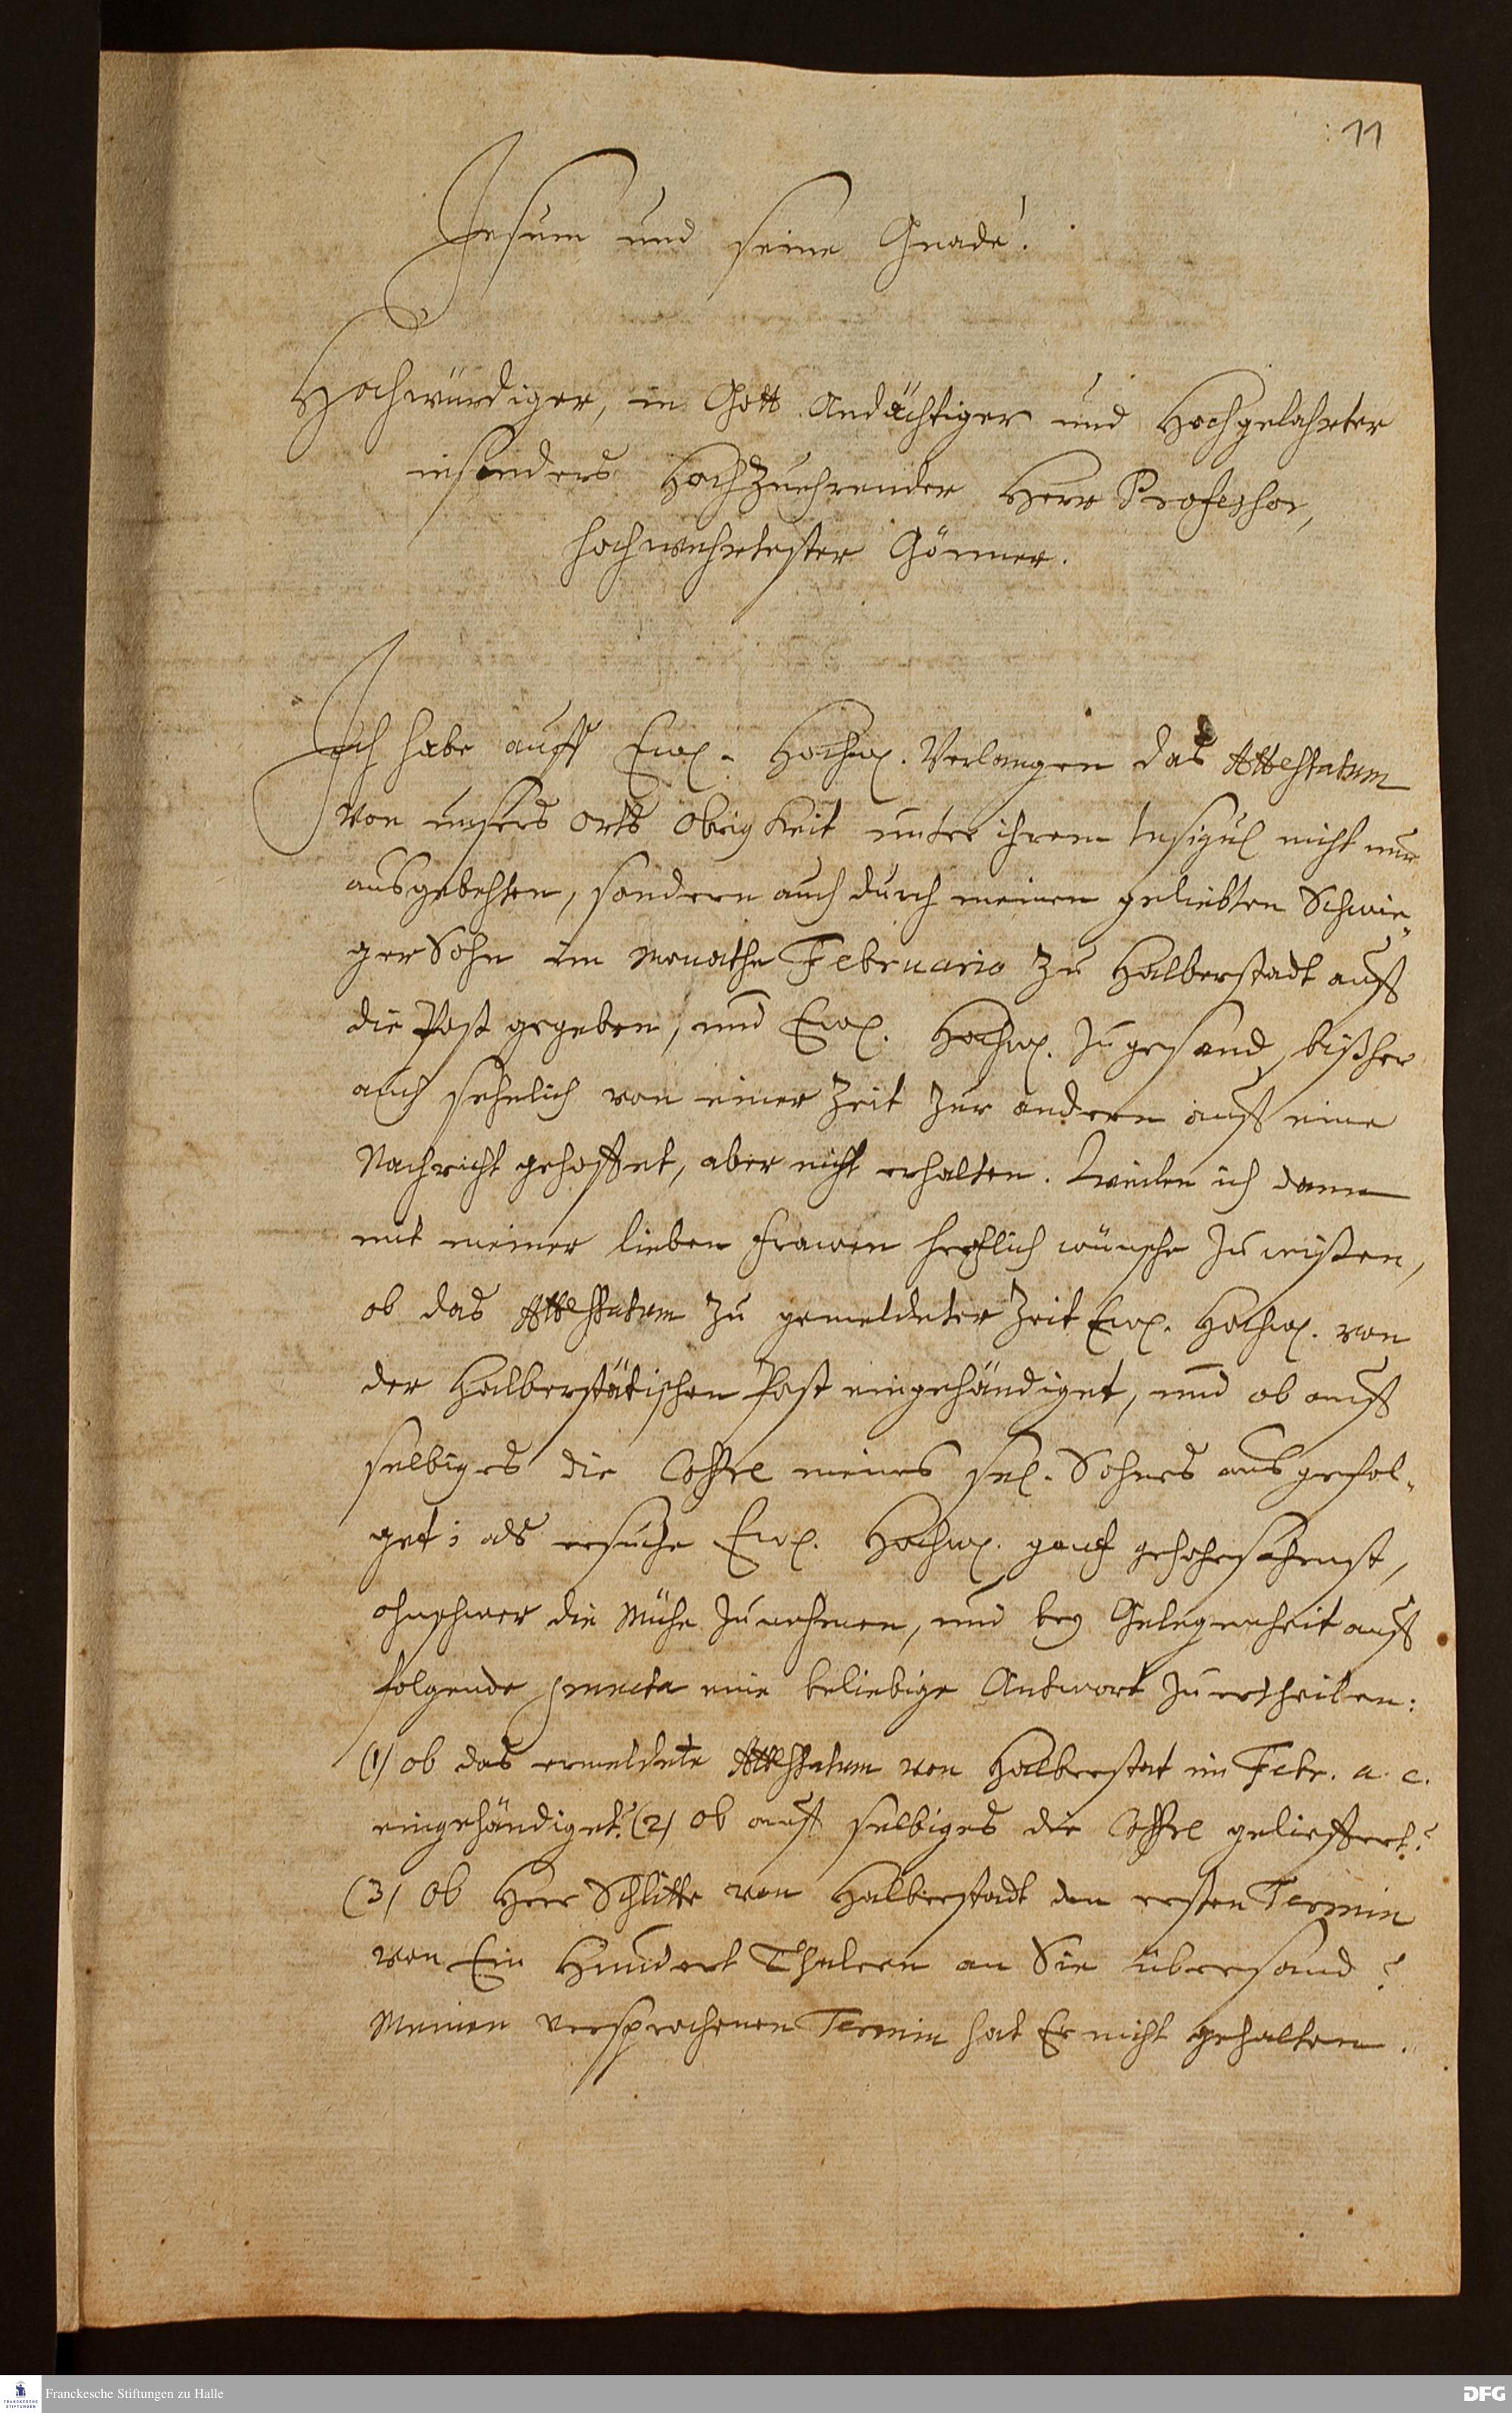 11
Jesum und seine Gnade!
Hochwürdiger, in Gott Andächtiger und Hochgelahrter
insonders HochZuehrender Herr Professor,
hochwehrtester Gönner.
Ich habe auff Ew. Hochw. Verlangen das Attestatum
von unsers Orts Obrigkeit unter ihrem Insigul nicht nur
ausgebehten, sondern auch durch meinen geliebten Schwie„
gerSohn im Monathe Februario zu Halberstadt auff
die Post gegeben, und Ew. Hochw. zugesand, bißher
auch sehnlich von einer Zeit zur andern auff eine
Nachricht gehoffet, aber nicht erhalten. Weilen ich dann
mit meiner lieben Frawen hertzlich wünsche zu wißen,
ob das Attestatum zu gemeldeter Zeit Ew. Hochw. von
der Halberstätischen Post eingehändiget, und ob auff
selbiges die Coffre meines sel. Sohnes ausgefol„
get; als ersuche Ew. Hochw. gantz gehorsahmst,
ohnschwer die Mühe zu nehmen, und bey Gelegenheit auff
folgende puncta eine beliebige Antwort zu ertheilen:
(1) ob das ermeldete Attestatum von Halberstat im Febr. a. c.
eingehändiget? (2) ob auff selbiges die Coffre geliefert?
(3) Ob Herr Schlitte von Halberstadt den ersten Termin
von Ein Hundert Thalern an Sie übersand?
Meinen versprochenen Termin hat Er nicht gehalten.
FRANCKESCHE STIFTUNGEN
Franckesche Stiftungen zu Halle
DFG